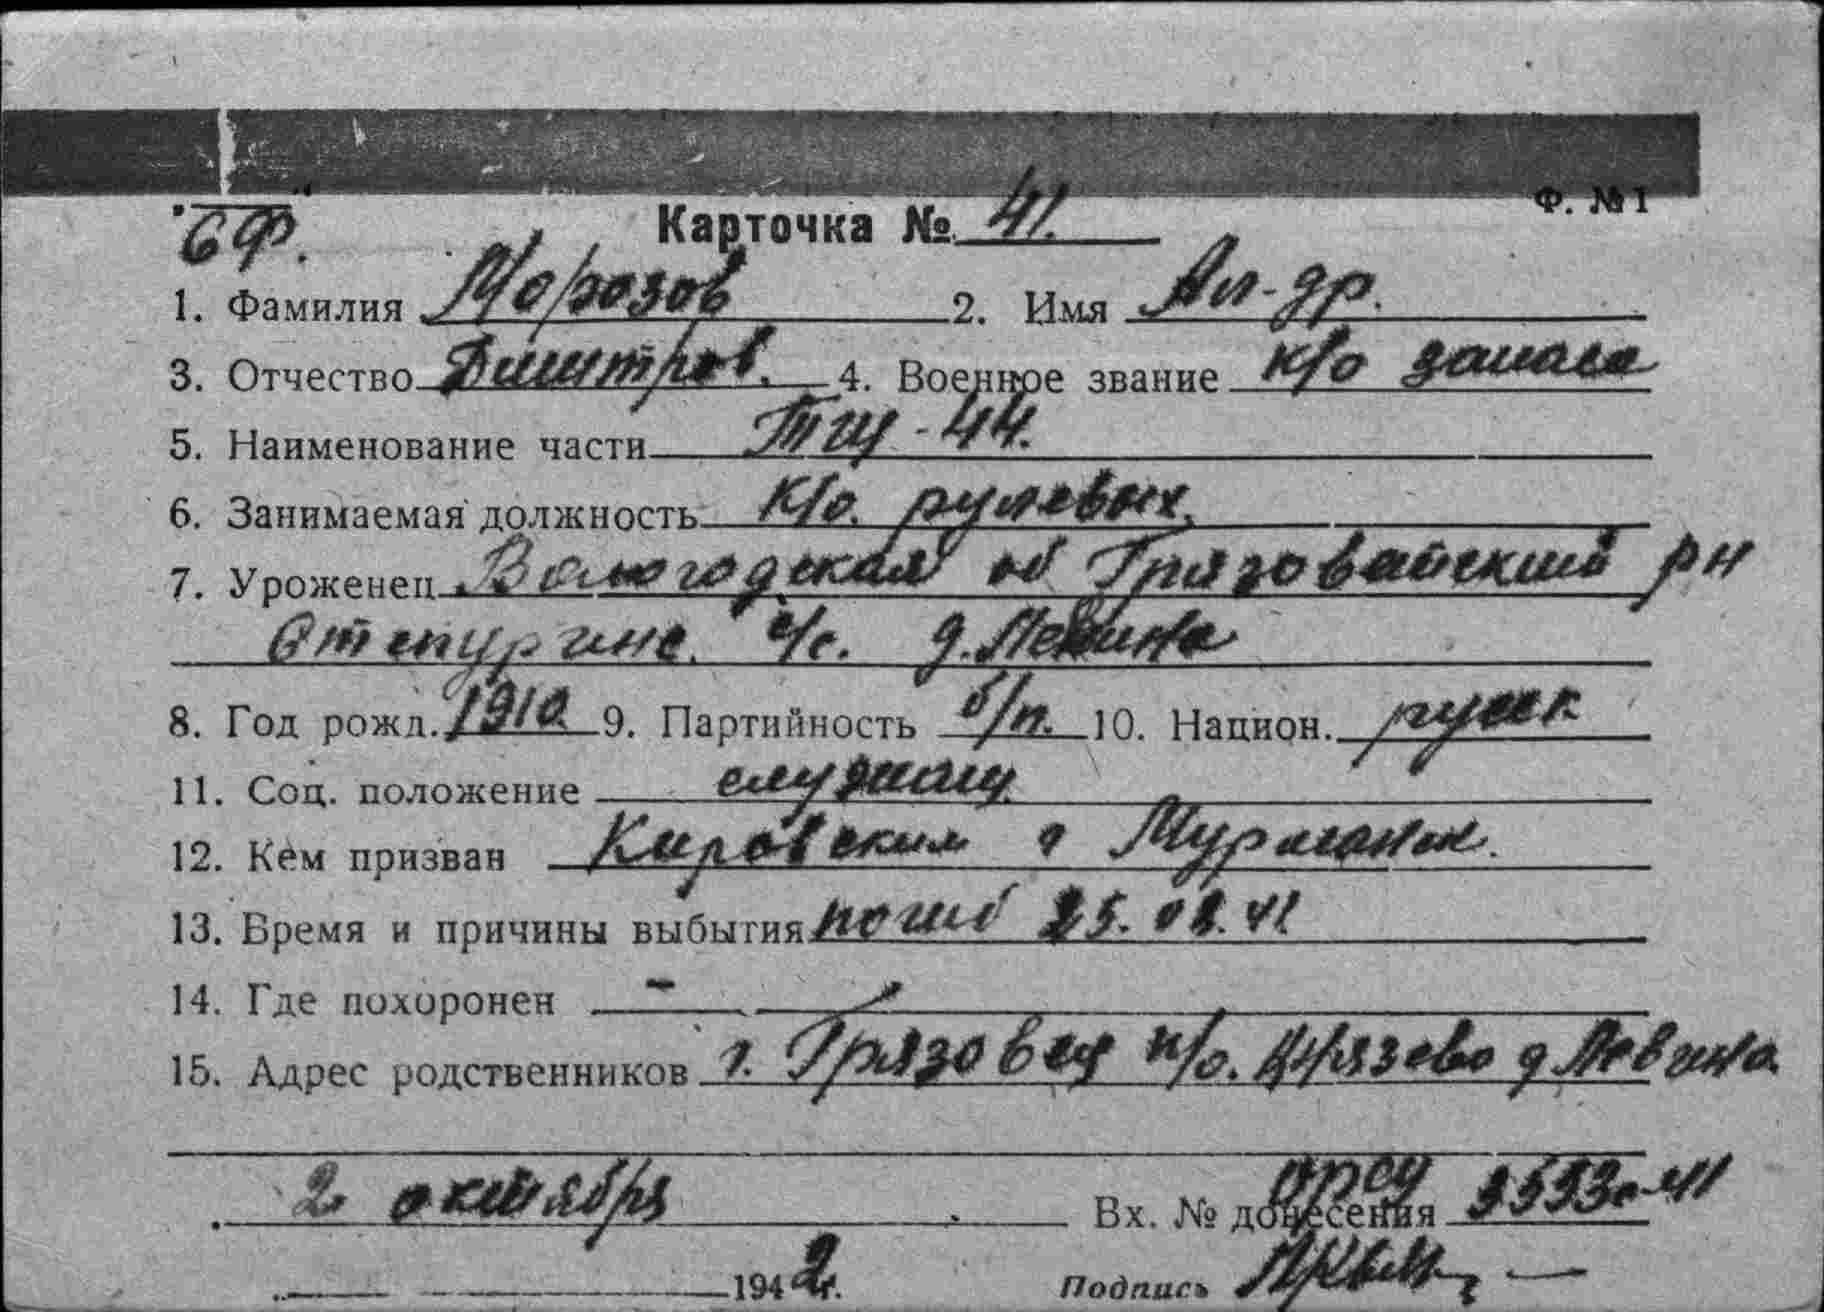 Ф. №1
СФ. Карточка № 41.
1. Фамилия Морозов 2. Имя Ал-др.
3. Отчество Дмитров. 4. Военное звание к/о запаса
5. Наименование части ТЩ-44.
6. Занимаемая должность к/о. рулевых
7. Уроженец Вологодская об Грязовайский рн
с/с. д. Левина
8. Год рожд. 1910 9. Партийность б/п. 10. Национ. русск
11. Соц. положение служащ.
12. Кем призван Кировским г Мурманск.
13. Время и причины выбытия погиб 25.08.41
14. Где похоронен -
15. Адрес родственников г. Грязовец п/о. д Левина
2 октября
Вх. № донесения орсу
1942г. Подпись